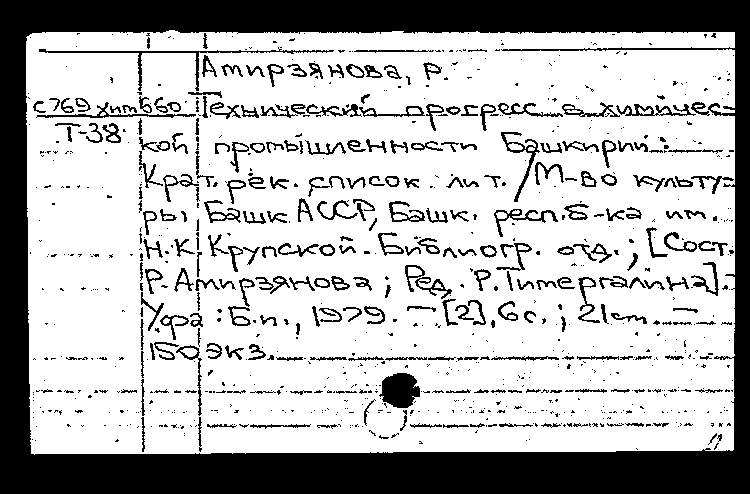 Амирзянова, Р.
с769 хим660 Технический прогресс в химичес-
Т-38 кой промышленности Башкирии:
Крат. рек. список лит. / М-во культу-
ры Башк АССР, Башк. респ. б-ка им.
Н.К. Крупской. Библиогр. отд.; [Сост.
Р. Амирзянова; Ред. Р. Тимергалина].-
Уфа: Б.и., 1979. - [2], 6 с.; 21 cm. -
150 экз.